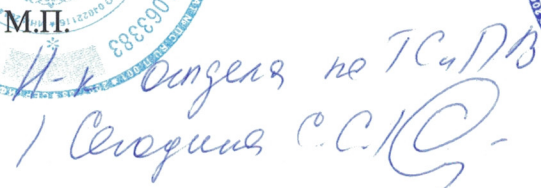 М.П.
063383
Н-к отдела по ТСиПВ
/ Сегодина С.С./